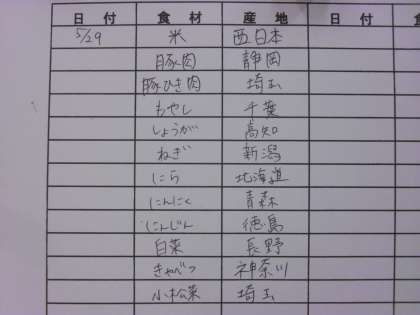 日付 食材 産地 日付
5/29 米 西日本
豚肉 静岡
豚ひき肉 埼玉
もやし 千葉
しょうが 高知
ねぎ 新潟
にら 北海道
にんにく 青森
にんじん 徳島
白菜 長野
きゃべつ 神奈川
小松菜 埼玉